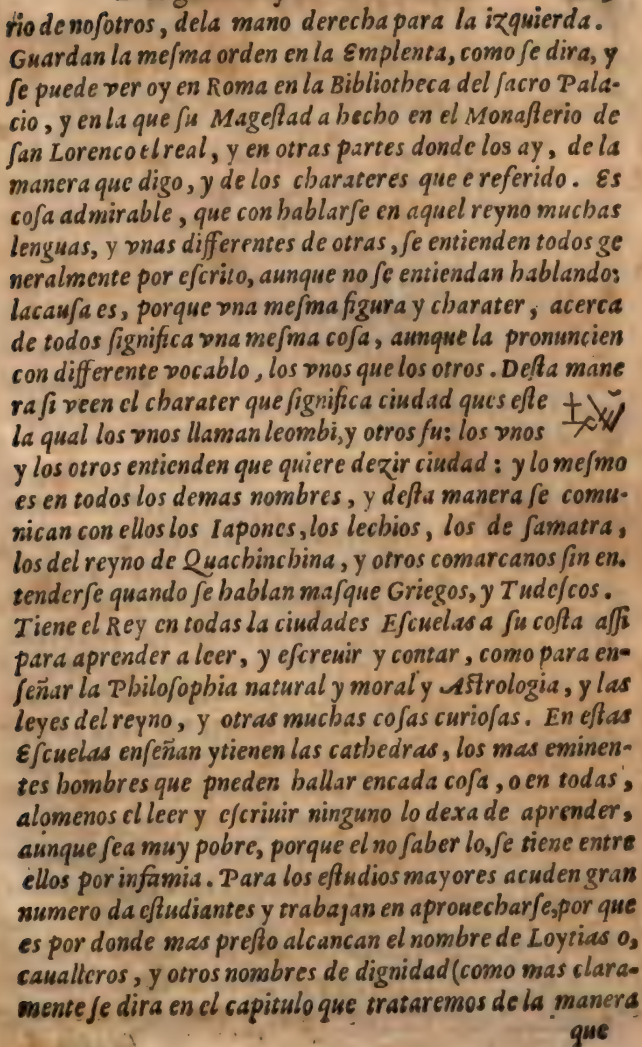 rio de nosotros, dela mano derecha para la izquierda.
Guardan la mesma orden en la Emplenta, como se dira, y
se puede ver oy en Roma en la Bibliotheca del sacro Pala-
cio, y en la que su Magestad a hecho en el Monasterio de
san Lorenco el real, y en otras partes donde los ay, de la
manera que digo, y de los charateres que e referido. Es
cosa admirable, que con hablarse en aquel reyno muchas
lenguas, y vnas differentes de otras, se entienden todos ge
neralmente por escrito, aunque no se entiendan hablando:
lacausa es, porque vna mesma figura y charater, acerca
de todos significa vna mesma cosa, aunque la pronuncien
con differente vocablo, los vnos que los otros. Desta mane
ra si veen el charater que significa ciudad ques este
la qual los vnos llaman leombi, y otros fu: los vnos
y los otros entienden que quiere dezir ciudad: y lo mesmo
es en todos los demas nombres, y desta manera se comu-
nican con ellos los Iapones, los lechios, los de samatra,
los del reyno de Quachinchina, y otros comarcanos sin en.
tenderse quando se hablan masque Griegos, y Tudescos.
Tiene el Rey en todas la ciudades Escuelas a su costa assi
para aprender a leer, y escreuir y contar, como para en-
señar la Philosophia natural y moral y Astrologia, y las
leyes del reyno, y otras muchas cosas curiosas. En estas
Escuelas enseñan ytienen las cathedras, los mas eminen-
tes hombres que pneden hallar encada cosa, o en todas,
alomenos el leer y escriuir ninguno lo dexa de aprender,
aunque sea muy pobre, porque el no saber lo, se tiene entre
ellos por infamia. Para los estudios mayores acuden gran
numero da estudiantes y trabajan en aprouecharse, por que
es por donde mas presto alcancan el nombre de Loytias o,
caualleros, y otros nombres de dignidad (como mas clara-
mente se dira en el capitulo que trataremos de la manera
que